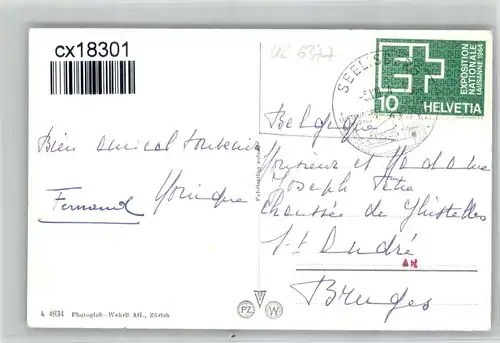 cx18301
UR 5377
SEELISB
EXPOSITION
NATIONALE
LAUSANNE 1964
10 HELVETIA
Belgique
Bien amical souvenir
Monique
Fernand
Monsieur et Madame
Joseph
Chaussée de Ghistelles
St André
AH
Bruges
k 4834 Photoglob-Wehrli AG., Zürich
PZ W